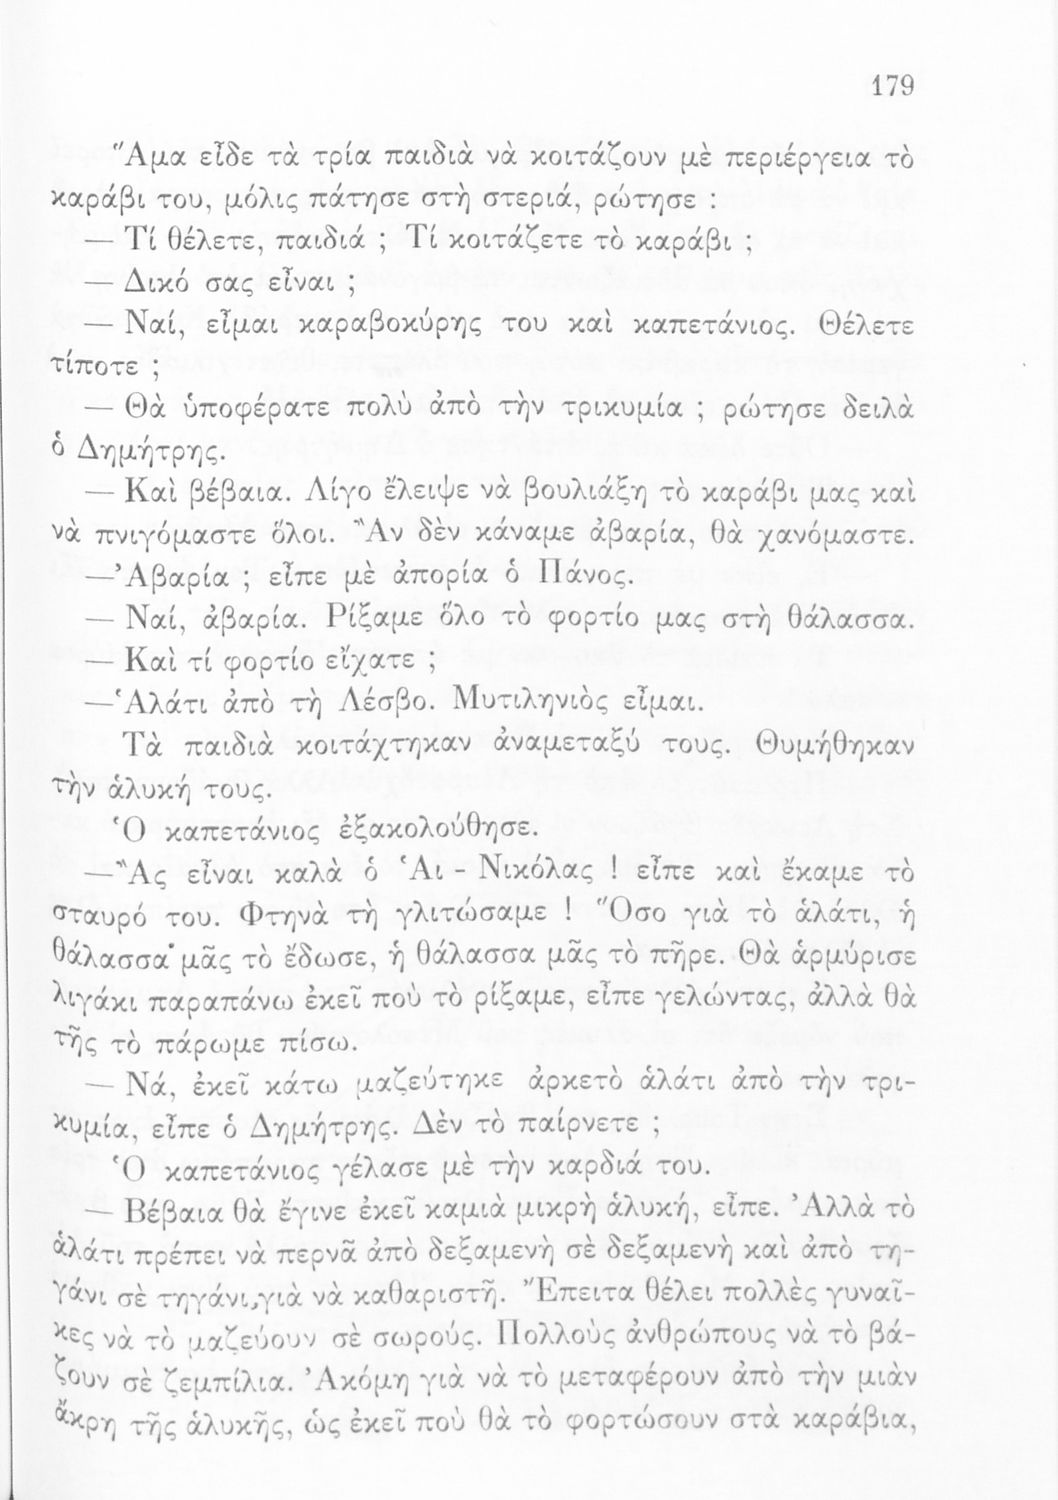 179
Ἅμα εἶδε τὰ τρία παιδιὰ νὰ κοιτάζουν μὲ περιέργεια τὸ
καράβι του, μόλις πάτησε στὴ στεριά, ρώτησε :
— Τί θέλετε, παιδιά ; Τί κοιτάζετε τὸ καράβι ;
— Δικό σας εἶναι ;
— Ναί, εἶμαι καραβοκύρης του καὶ καπετάνιος. Θέλετε
τίποτε ;
— Θὰ ὑποφέρατε πολὺ ἀπὸ τὴν τρικυμία ; ρώτησε δειλὰ
ὁ Δημήτρης.
— Καὶ βέβαια. Λίγο ἔλειψε νὰ βουλιάξη τὸ καράβι μας καὶ
νὰ πνιγόμαστε ὅλοι. Ἂν δὲν κάναμε ἀβαρία, θὰ χανόμαστε.
—Ἀβαρία ; εἶπε μὲ ἀπορία ὁ Πάνος.
— Ναί, ἀβαρία. Ρίξαμε ὅλο τὸ φορτίο μας στὴ θάλασσα.
— Καὶ τί φορτίο εἴχατε ;
—Ἁλάτι ἀπὸ τὴ Λέσβο. Μυτιληνιὸς εἶμαι.
Τὰ παιδιὰ κοιτάχτηκαν ἀναμεταξύ τους. Θυμήθηκαν
τὴν ἁλυκή τους.
Ὁ καπετάνιος ἐξακολούθησε.
—Ἂς εἶναι καλὰ ὁ Ἁι - Νικόλας ! εἶπε καὶ ἔκαμε τὸ
σταυρό του. Φτηνὰ τὴ γλιτώσαμε ! Ὅσο γιὰ τὸ ἁλάτι, ἡ
θάλασσα μᾶς τὸ ἔδωσε, ἡ θάλασσα μᾶς τὸ πῆρε. Θὰ ἁρμύρισε
λιγάκι παραπάνω ἐκεῖ ποὺ τὸ ρίξαμε, εἶπε γελώντας, ἀλλὰ θὰ
τῆς τὸ πάρωμε πίσω.
— Νά, ἐκεῖ κάτω μαζεύτηκε ἀρκετὸ ἁλάτι ἀπὸ τὴν τρι-
κυμία, εἶπε ὁ Δημήτρης. Δὲν τὸ παίρνετε ;
Ὁ καπετάνιος γέλασε μὲ τὴν καρδιά του.
— Βέβαια θὰ ἔγινε ἐκεῖ καμιὰ μικρὴ ἁλυκή, εἶπε. Ἀλλὰ τὸ
ἁλάτι πρέπει νὰ περνᾶ ἀπὸ δεξαμενὴ σὲ δεξαμενὴ καὶ ἀπὸ τη-
γάνι σὲ τηγάνι, γιὰ νὰ καθαριστῆ. Ἔπειτα θέλει πολλὲς γυναῖ-
κες νὰ τὸ μαζεύουν σὲ σωρούς. Πολλοὺς ἀνθρώπους νὰ τὸ βά-
ζουν σὲ ζεμπίλια. Ἀκόμη γιὰ νὰ τὸ μεταφέρουν ἀπὸ τὴν μιὰν
ἄκρη τῆς ἁλυκῆς, ὡς ἐκεῖ ποὺ θὰ τὸ φορτώσουν στὰ καράβια,